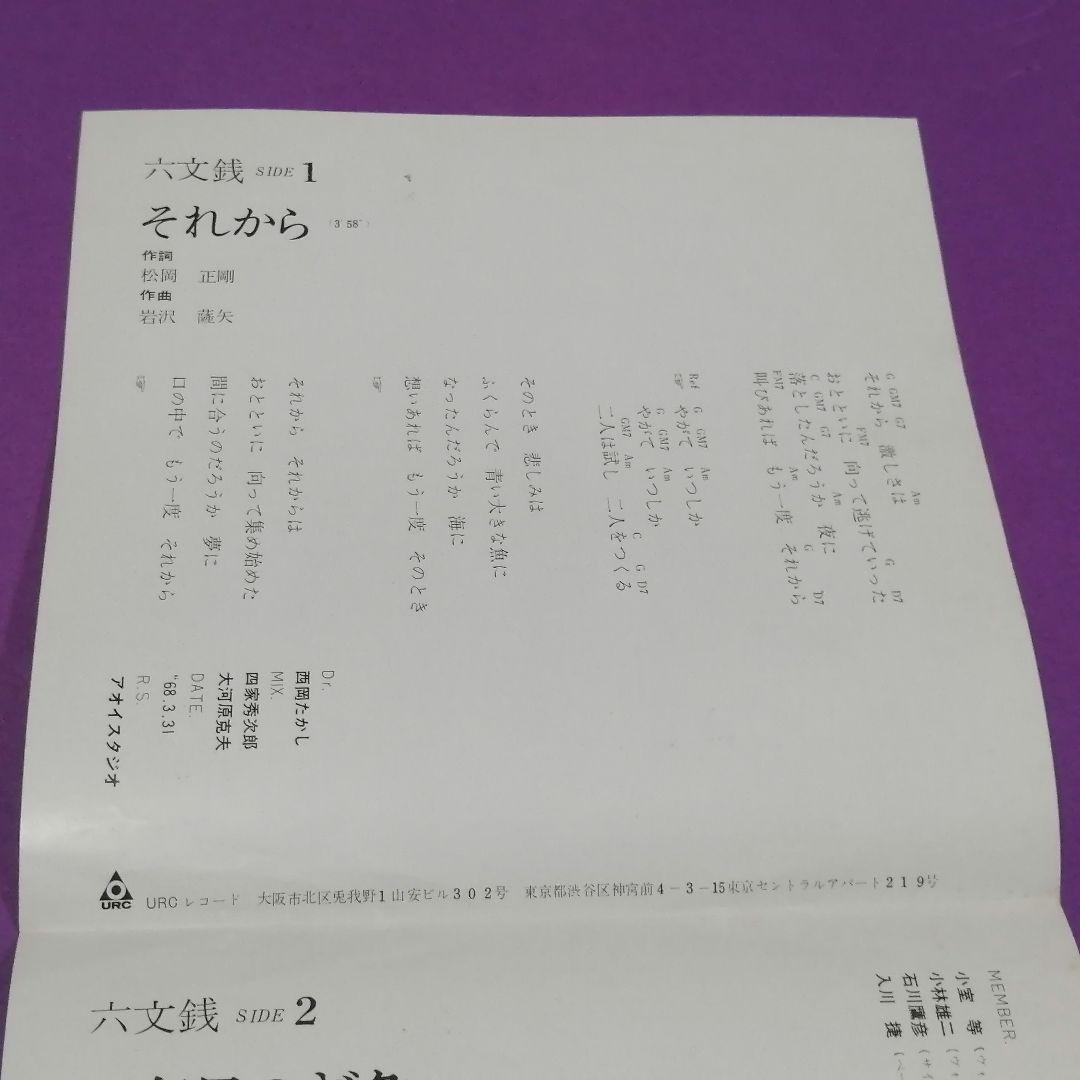 六文銭 SIDE 1
それから (3'58")
作詞
松岡 正剛
作曲
岩沢 薩矢
G GM7 G7 Am
それから 激しさは
FM7 G D7
おとといに 向って逃げていった
C GM7 G7 Am
落としたんだろうか 夜に
FM7 Am G D7
叫びあれば もう一度 それから
Ref G GM7 Am
☞ やがて いつしか
G GM7 Am
やがて いつしか
GM7 Am C G D7
二人は試し 二人をつくる
そのとき 悲しみは
ふくらんで 青い大きな魚に
なったんだろうか 海に
想いあれば もう一度 そのとき
☞
それから それからは
おとといに 向って集め始めた
間に合うのだろうか 夢に
口の中で もう一度 それから
☞
Dr.
西岡たかし
MIX.
四家秀次郎
大河原克夫
DATE.
"68.3.31
R.S.
アオイスタジオ
URC URCレコード 大阪市北区兎我野1山安ビル302号 東京都渋谷区神宮前4-3-15東京セントラルアパート219号
六文銭 SIDE 2
MEMBER.
小室 等
小林雄二
石川鷹彦
入川 捷